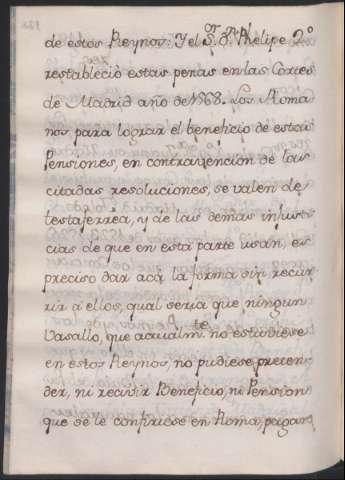 de estos Reynos: Y el S.or D.n Phelipe 2.o
restableciò estas penas en las Cortes
de Madrid año de 1568. Los Roma
nos para lograr el beneficio de estas
Pensiones, en contravencion de las
citadas resoluciones, se valen de
testaferrea, y de las demas industr
cias de que en esta parte usan, es
preciso dar acà la forma sin recur
rir à ellos, qual seria que ningun
Vasallo, que actualm.te no estuviese
en estos Reynos, no pudiese preten
der, ni recivir Beneficio, ni Pension
que se le confiriese en Roma, pagan